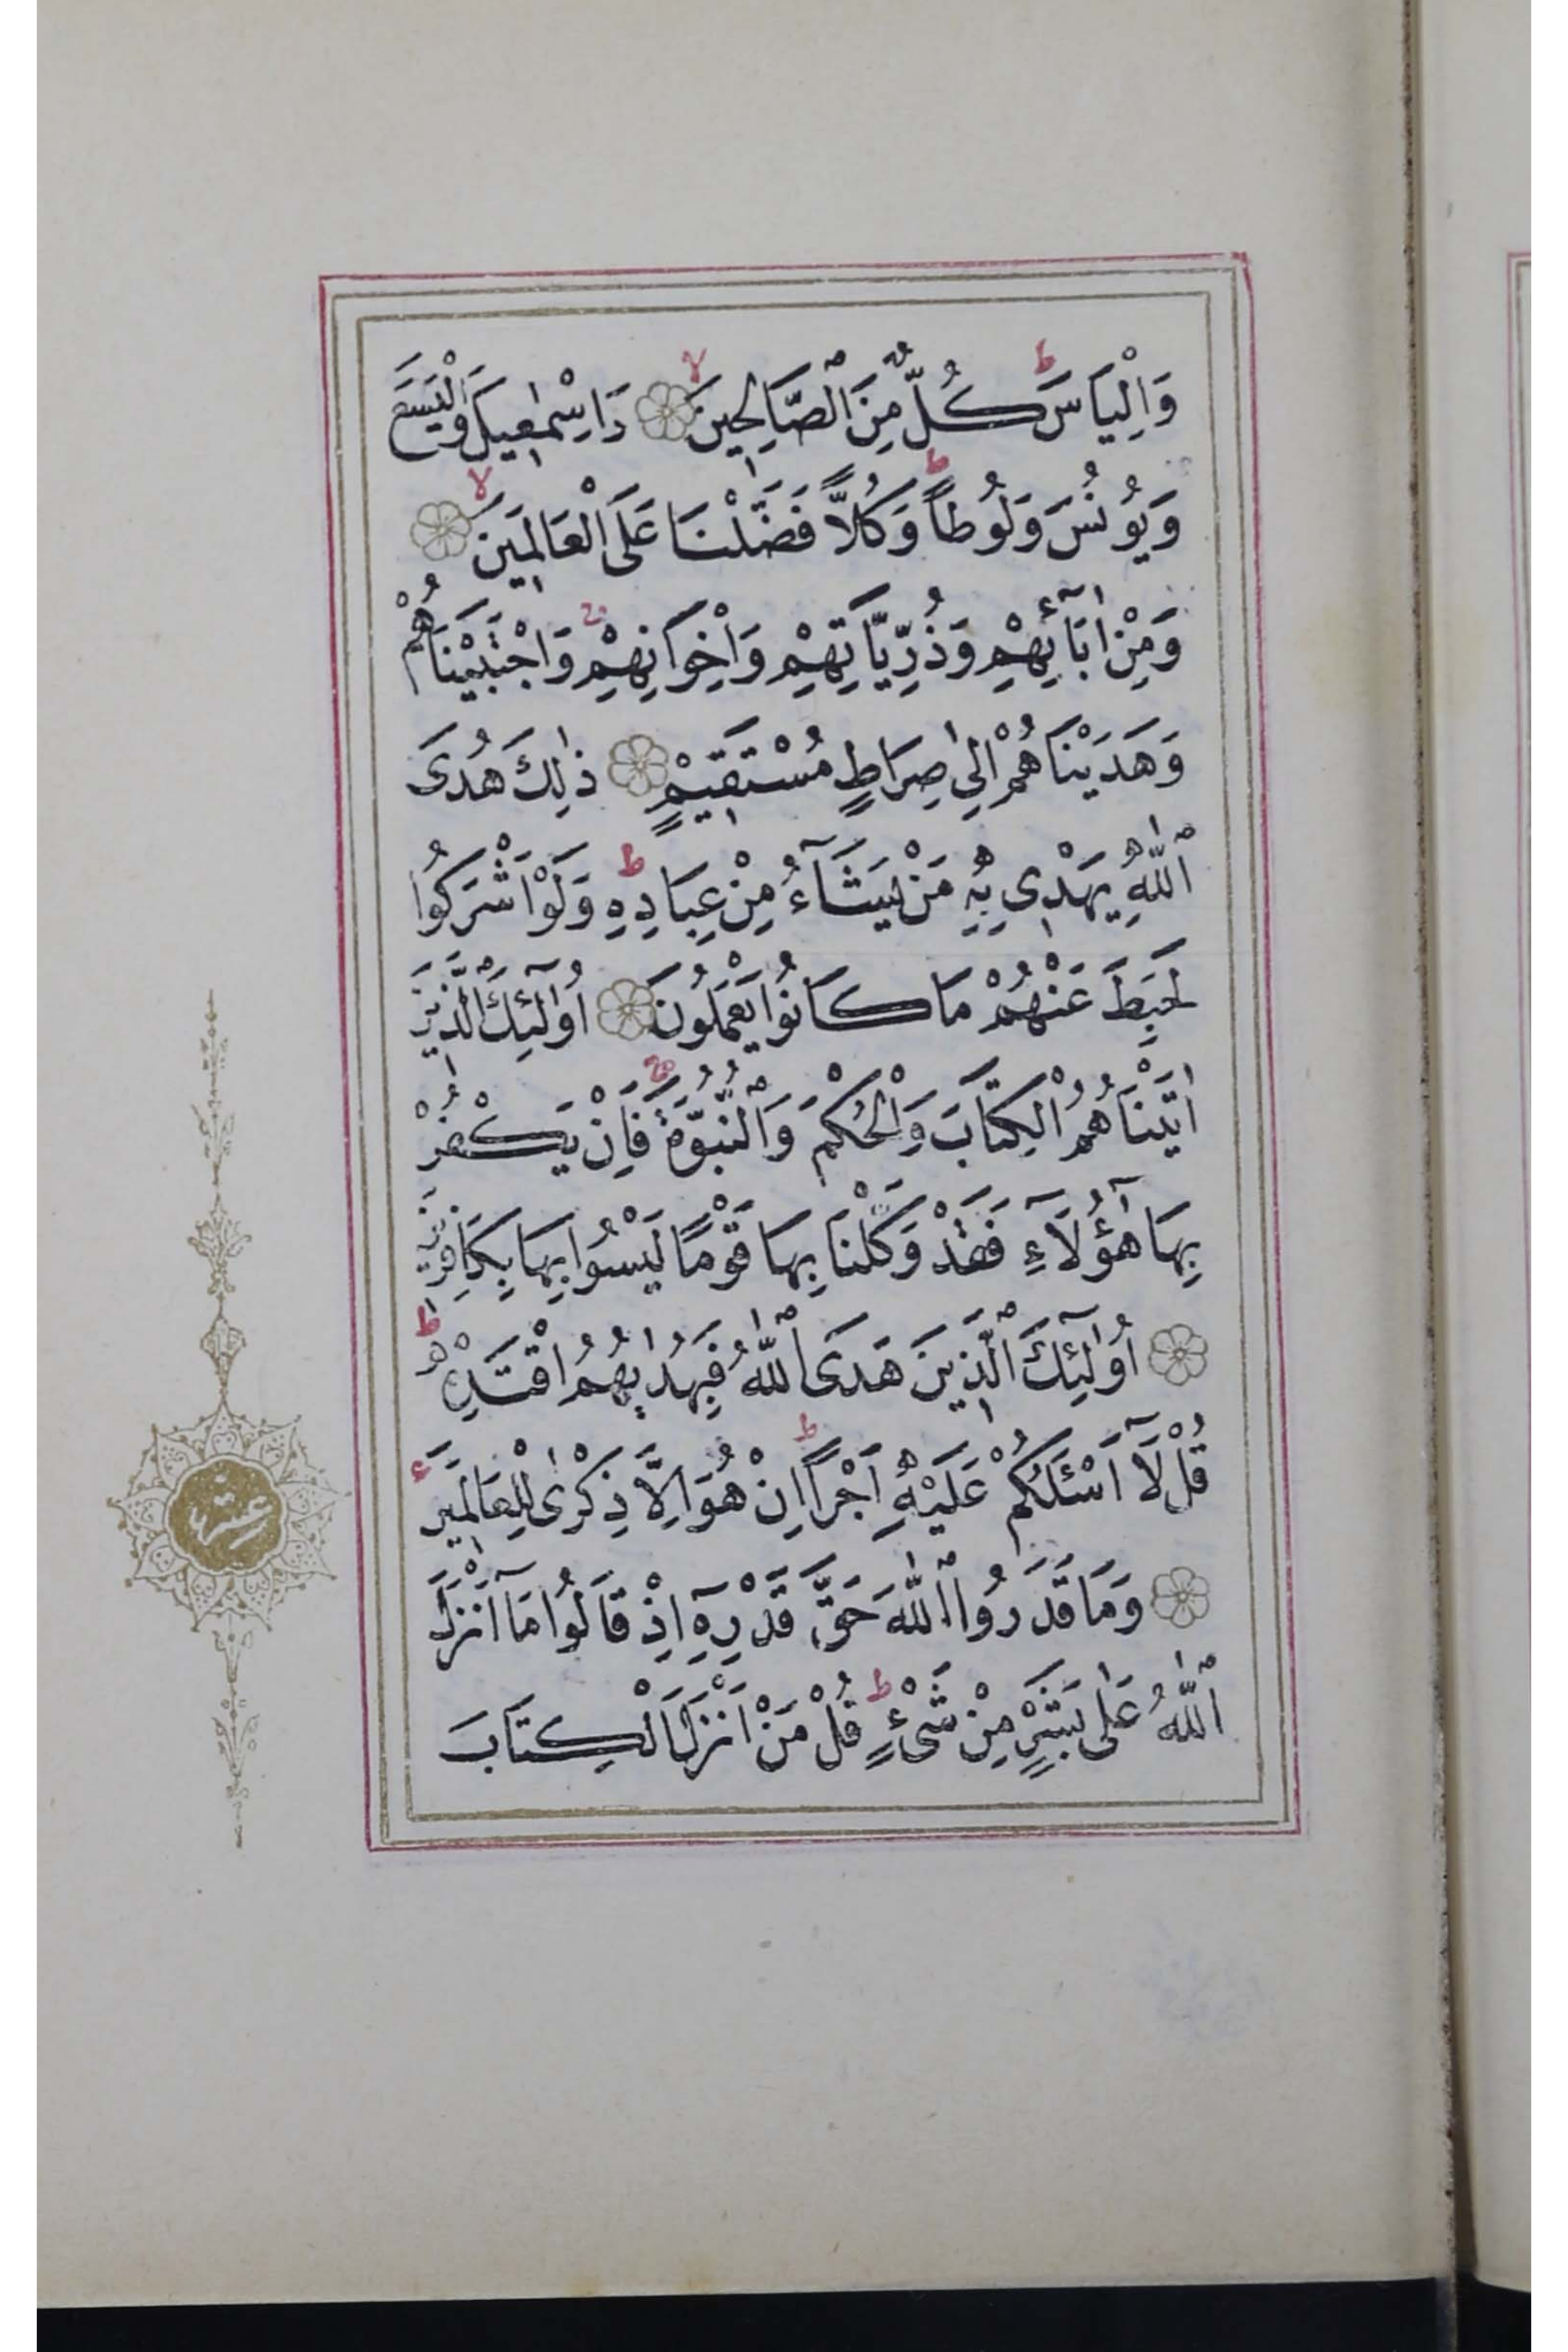 وَاِلْيَاسَ كُلٌّ مِنَ ٱلصَّالِحِينَ وَاِسْمٰعِيلَ وَالْيَسَعَ
وَيُونُسَ وَلُوطاً وَكُلاًّ فَضَّلْنَا عَلَى الْعَالَمِينَ
وَمِنْ اٰبَآئِهِمْ وَذُرِّيَّاتِهِمْ وَاِخْوَانِهِمْ وَاجْتَبَيْنَاهُمْ
وَهَدَيْنَاهُمْ اِلٰى صِرَاطٍ مُسْتَقِيمٍ ذٰلِكَ هُدَى
ٱللّٰهِ يَهْدِى بِهِ مَنْ يَشَآءُ مِنْ عِبَادِهِ وَلَوْ اَشْرَكُوا
لَحَبِطَ عَنْهُمْ مَا كَانُوا يَعْمَلُونَ اُولٰٓئِكَ ٱلَّذِينَ
اٰتَيْنَاهُمُ الْكِتَابَ وَالْحُكْمَ وَٱلنُّبُوَّةَ فَاِنْ يَكْفُرْ
بِهَا هٰٓؤُلَآءِ فَقَدْ وَكَّلْنَا بِهَا قَوْمًا لَيْسُوا بِهَا بِكَافِرِينَ
اُولٰٓئِكَ ٱلَّذِينَ هَدَى ٱللّٰهُ فَبِهُدٰيهُمُ اقْتَدِهْ
قُلْ لَآ اَسْئَلُكُمْ عَلَيْهِ اَجْراً اِنْ هُوَ اِلَّا ذِكْرٰى لِلْعَالَمِينَ
وَمَا قَدَرُوا ٱللّٰهَ حَقَّ قَدْرِهٓ اِذْ قَالُوا مَآ اَنْزَلَ
ٱللّٰهُ عَلٰى بَشَرٍ مِنْ شَىْءٍ قُلْ مَنْ اَنْزَلَ الْكِتَابَ
عشر